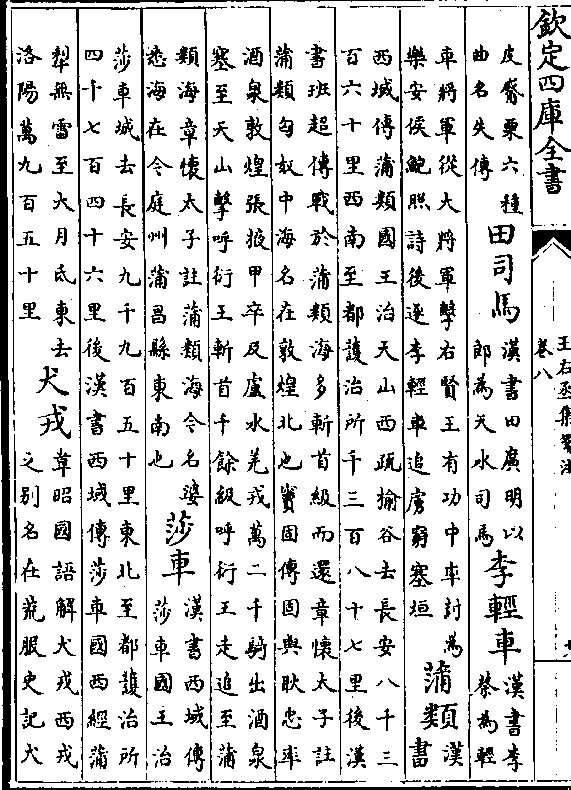 欽定四庫全書
王右丞集箋注
卷八
皮膋栗六種
曲名失傳
田司馬
漢書田廣明以
郎為天水司馬
李輕車
漢書李
蔡為輕
車將軍從大將軍擊右賢王有功中率封為
樂安侯鮑照詩後逐李輕車追虜窮塞垣
蒲類
漢
書
西域傳蒲類國王治天山西疏榆谷去長安八千三
百六十里西南至都護治所千三百八十七里後漢
書班超傳戰於蒲類海多斬首級而還章懷太子註
蒲類匈奴中海名在敦煌北也竇固傳固與耿忠率
酒泉敦煌張掖甲卒及盧水羌戎萬二千騎出酒泉
塞至天山擊呼衍王斬首千餘級呼衍王走追至蒲
類海章懷太子註蒲類海今名婆
悉海在今庭州蒲昌縣東南也
莎車
漢書西域傳
莎車國王治
莎車城去長安九千九百五十里東北至都護治所
四千七百四十六里後漢書西域傳莎車國西經蒲
犁無雷至大月氏東去
洛陽萬九百五十里
犬戎
韋昭國語解犬戎西戎
之別名在荒服史記犬